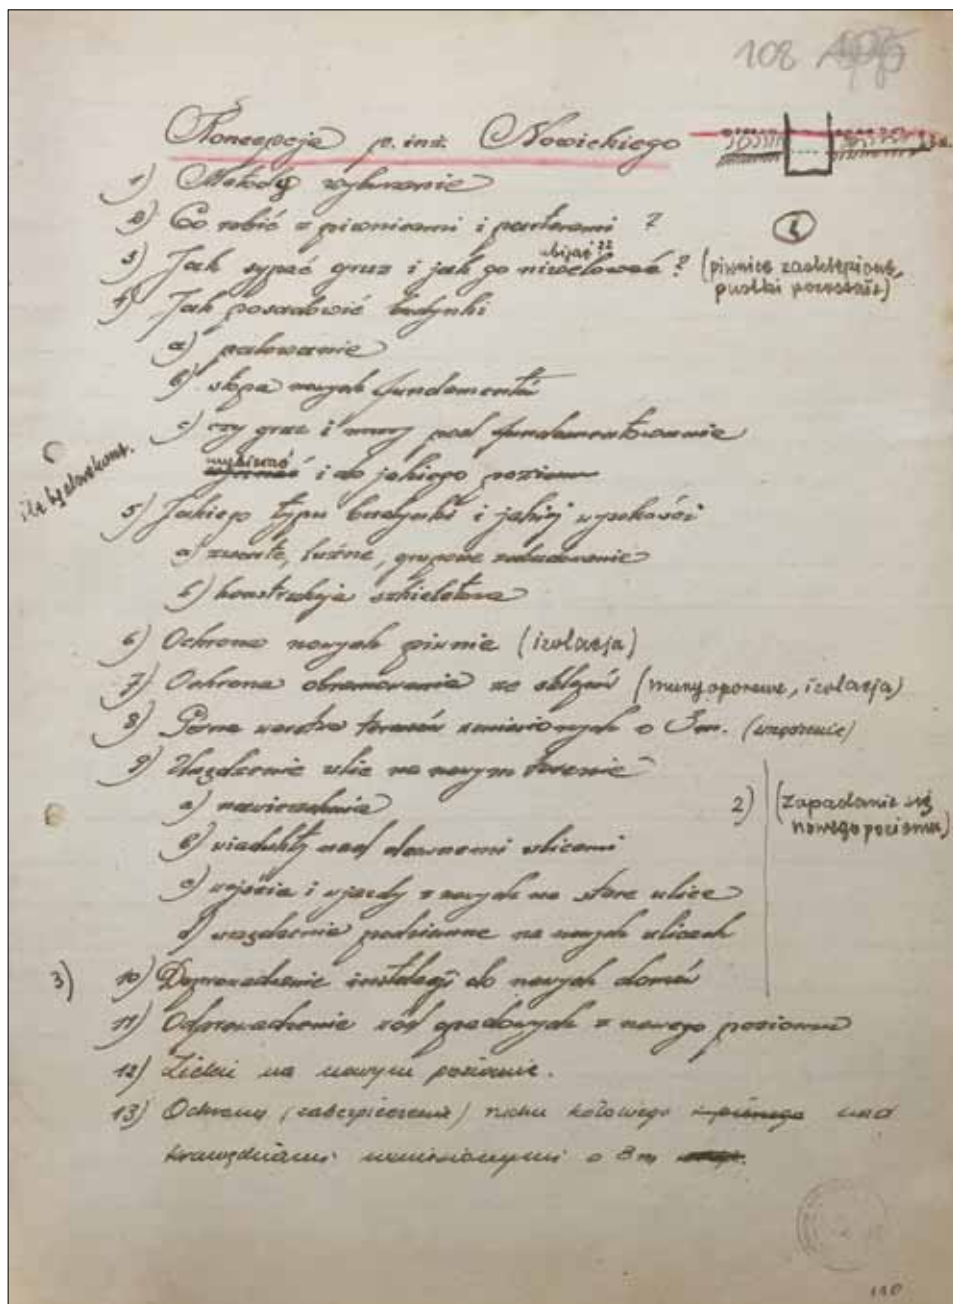 108
Koncepcja p. inż. Nowickiego
1) Metody wykonanie
2) Co robić z piwnicami i parterami ?
ubijać ??
3) Jak sypać gruz i jak go niwelować ? (piwnice zasklepione,
pustki pozostałe)
4) Jak posadowić budynki
a) palowanie
b) stopa nowych fundamentów
c) czy gruz i mury pod fundamentowanie
wybierać
i do jakiego poziomu
5) Jakiego typu budynki i jakiej wysokości
a) zwarte, luźne, grupowe zabudowanie
b) konstrukcja szkieletowa
6) Ochrona nowych piwnic (izolacja)
7) Ochrona obramowania ze sklepień (mury oporowe, izolacja)
8) Pełna warstwa terenów wzniesionych o 3 m.
9) Urządzenie ulic na nowym terenie
a) nawierzchnia
2) (zapadanie się
nowego poziomu)
b) wiadukty nad dawnemi ulicami
c) wejścia i wjazdy z nowych na stare ulice
d) urządzenia podziemne na nowych ulicach
3) 10) Doprowadzenie instalacji do nowych domów
11) Odprowadzenie wód opadowych z nowego poziomu
12) Zieleń na nowym poziomie.
13) Ochrona (zabezpieczenie) ruchu kołowego i pieszego nad
krawędziami wzniesionymi o 3 m
110